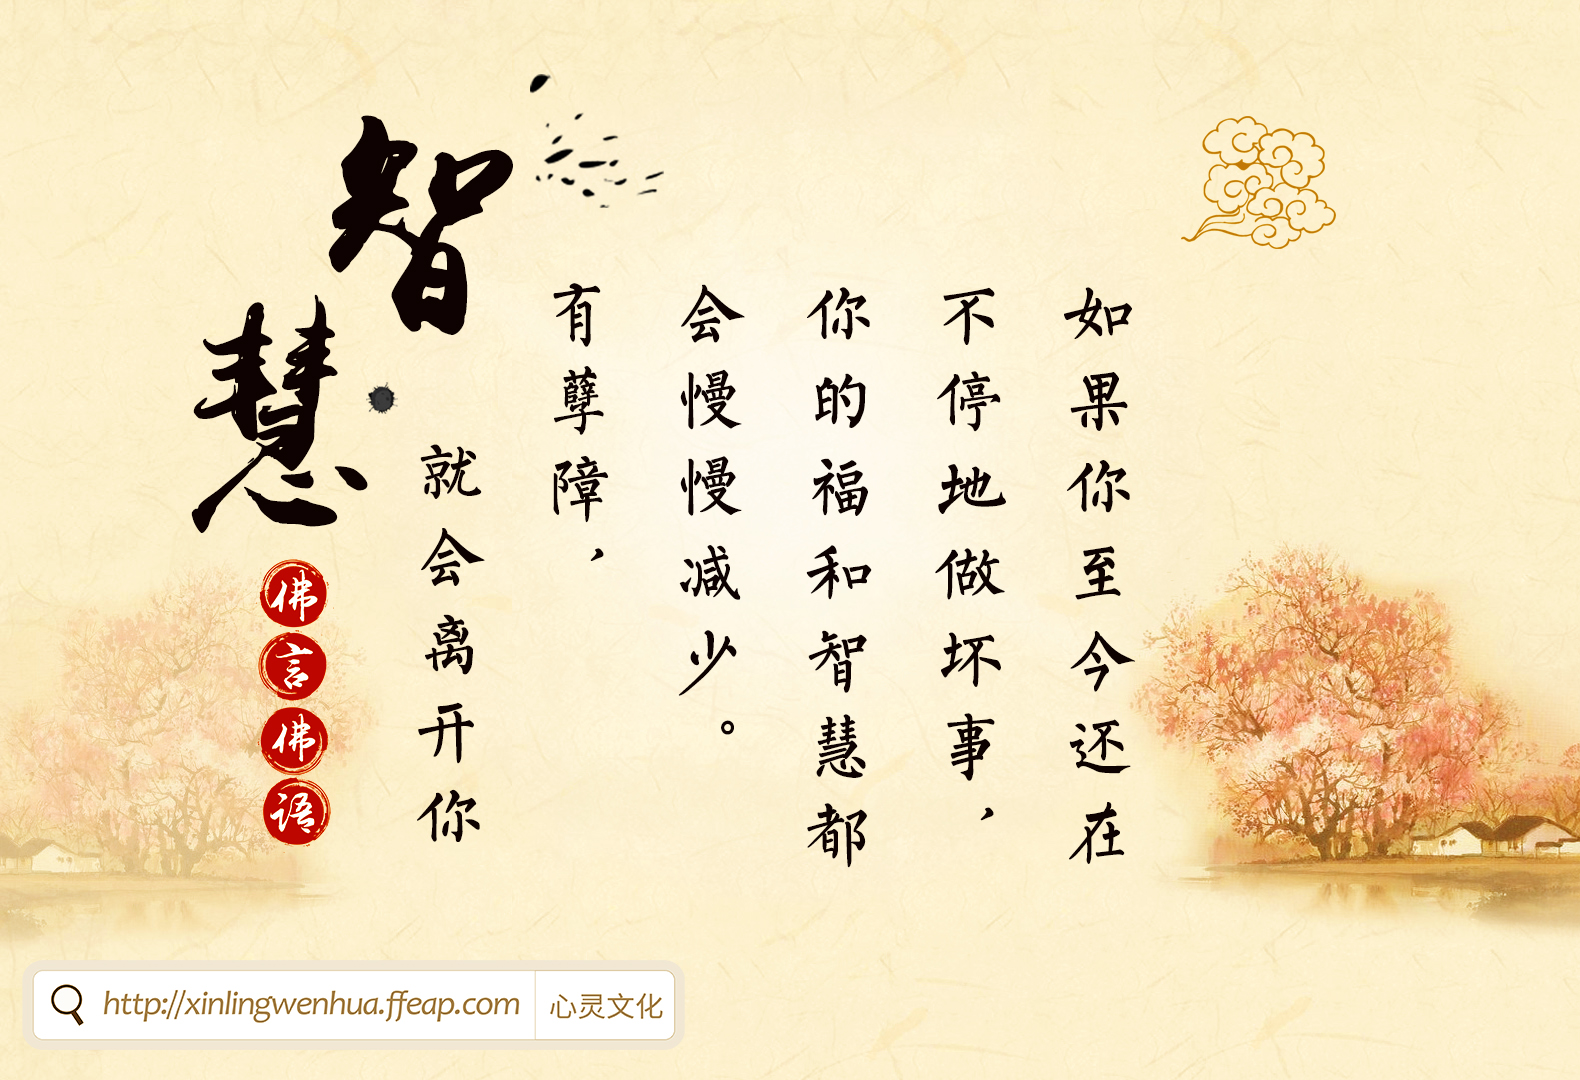 如果你至今还在
不停地做坏事，
你的福和智慧都
会慢慢减少。
有孽障，
就会离开你
智慧
佛言佛语
http://xinlingwenhua.ffeap.com
心灵文化